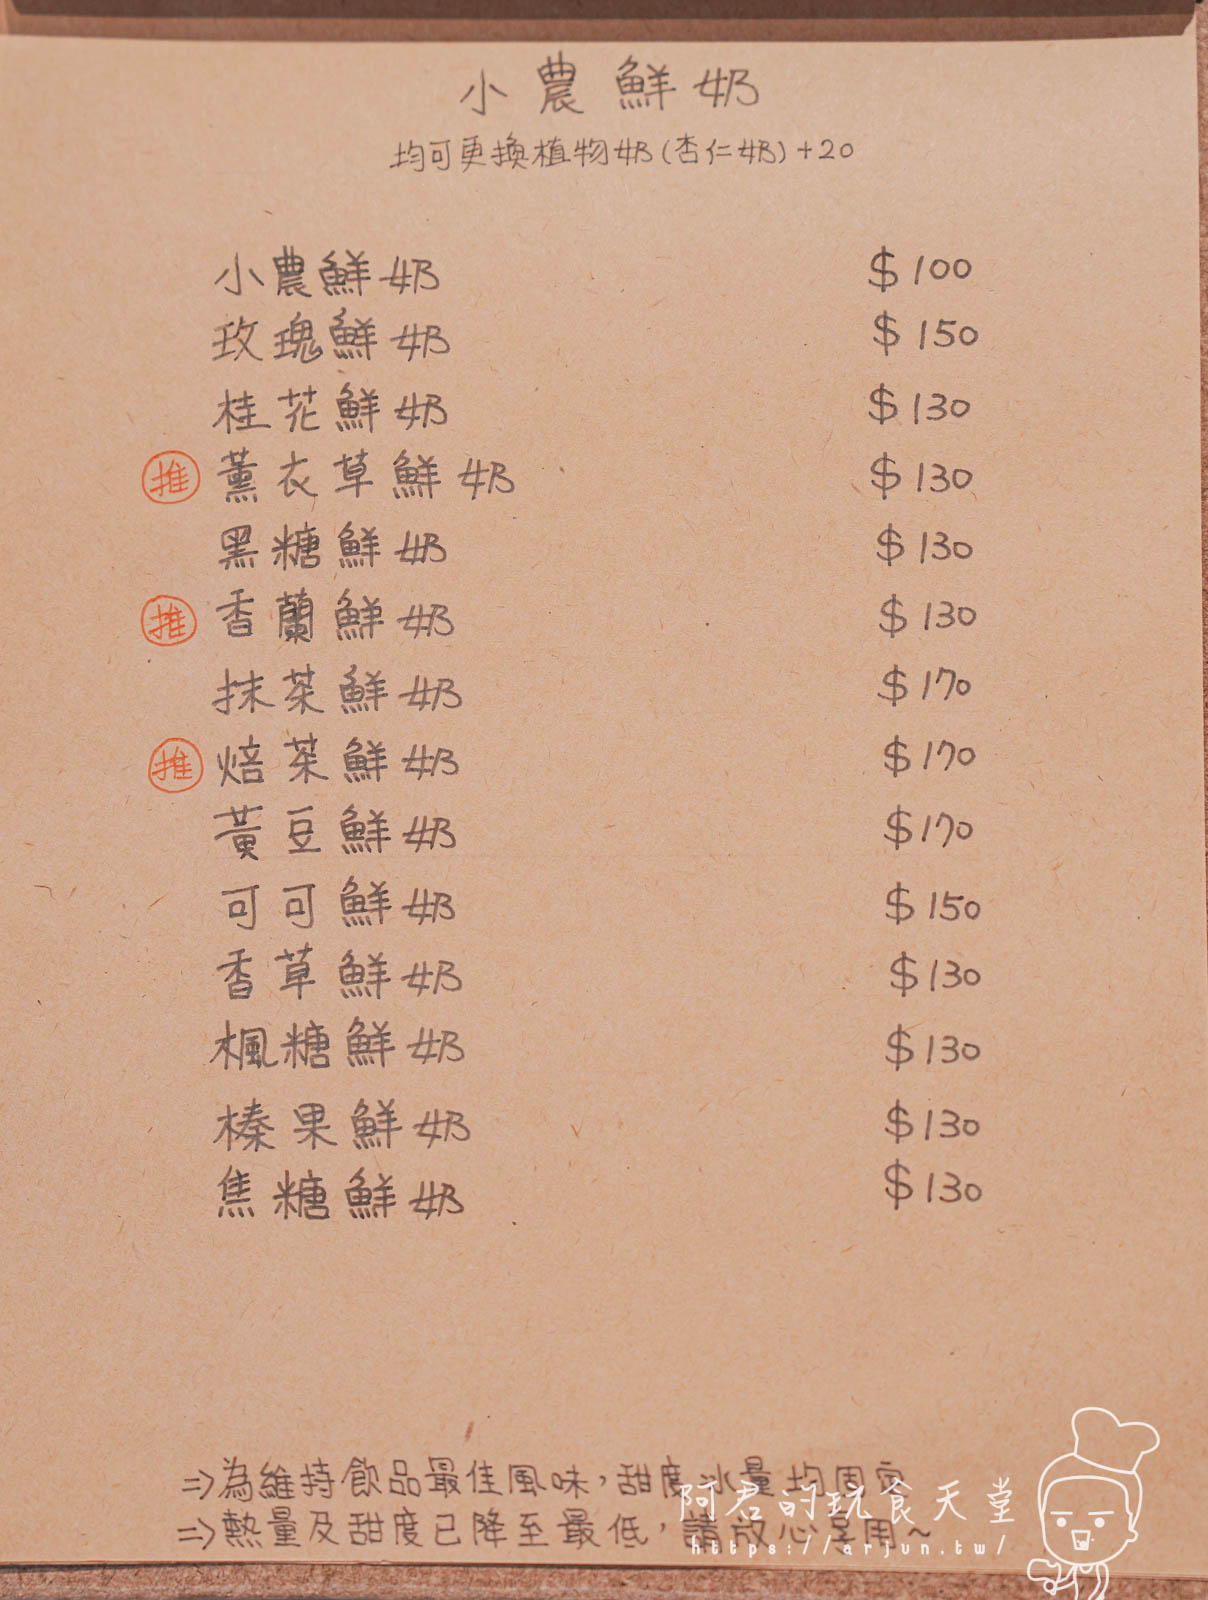 小農鮮奶
均可更換植物奶(杏仁奶)+20
小農鮮奶 $100
玫瑰鮮奶 $150
桂花鮮奶 $130
推 薰衣草鮮奶 $130
黑糖鮮奶 $130
推 香蘭鮮奶 $130
抹茶鮮奶 $170
推 焙茶鮮奶 $170
黃豆鮮奶 $170
可可鮮奶 $150
香草鮮奶 $130
楓糖鮮奶 $130
榛果鮮奶 $130
焦糖鮮奶 $130
⇒為維持飲品最佳風味,甜度冰量均固定
⇒熱量及甜度已降至最低,請放心享用~
阿君的玩食天堂
https://arjun.tw/